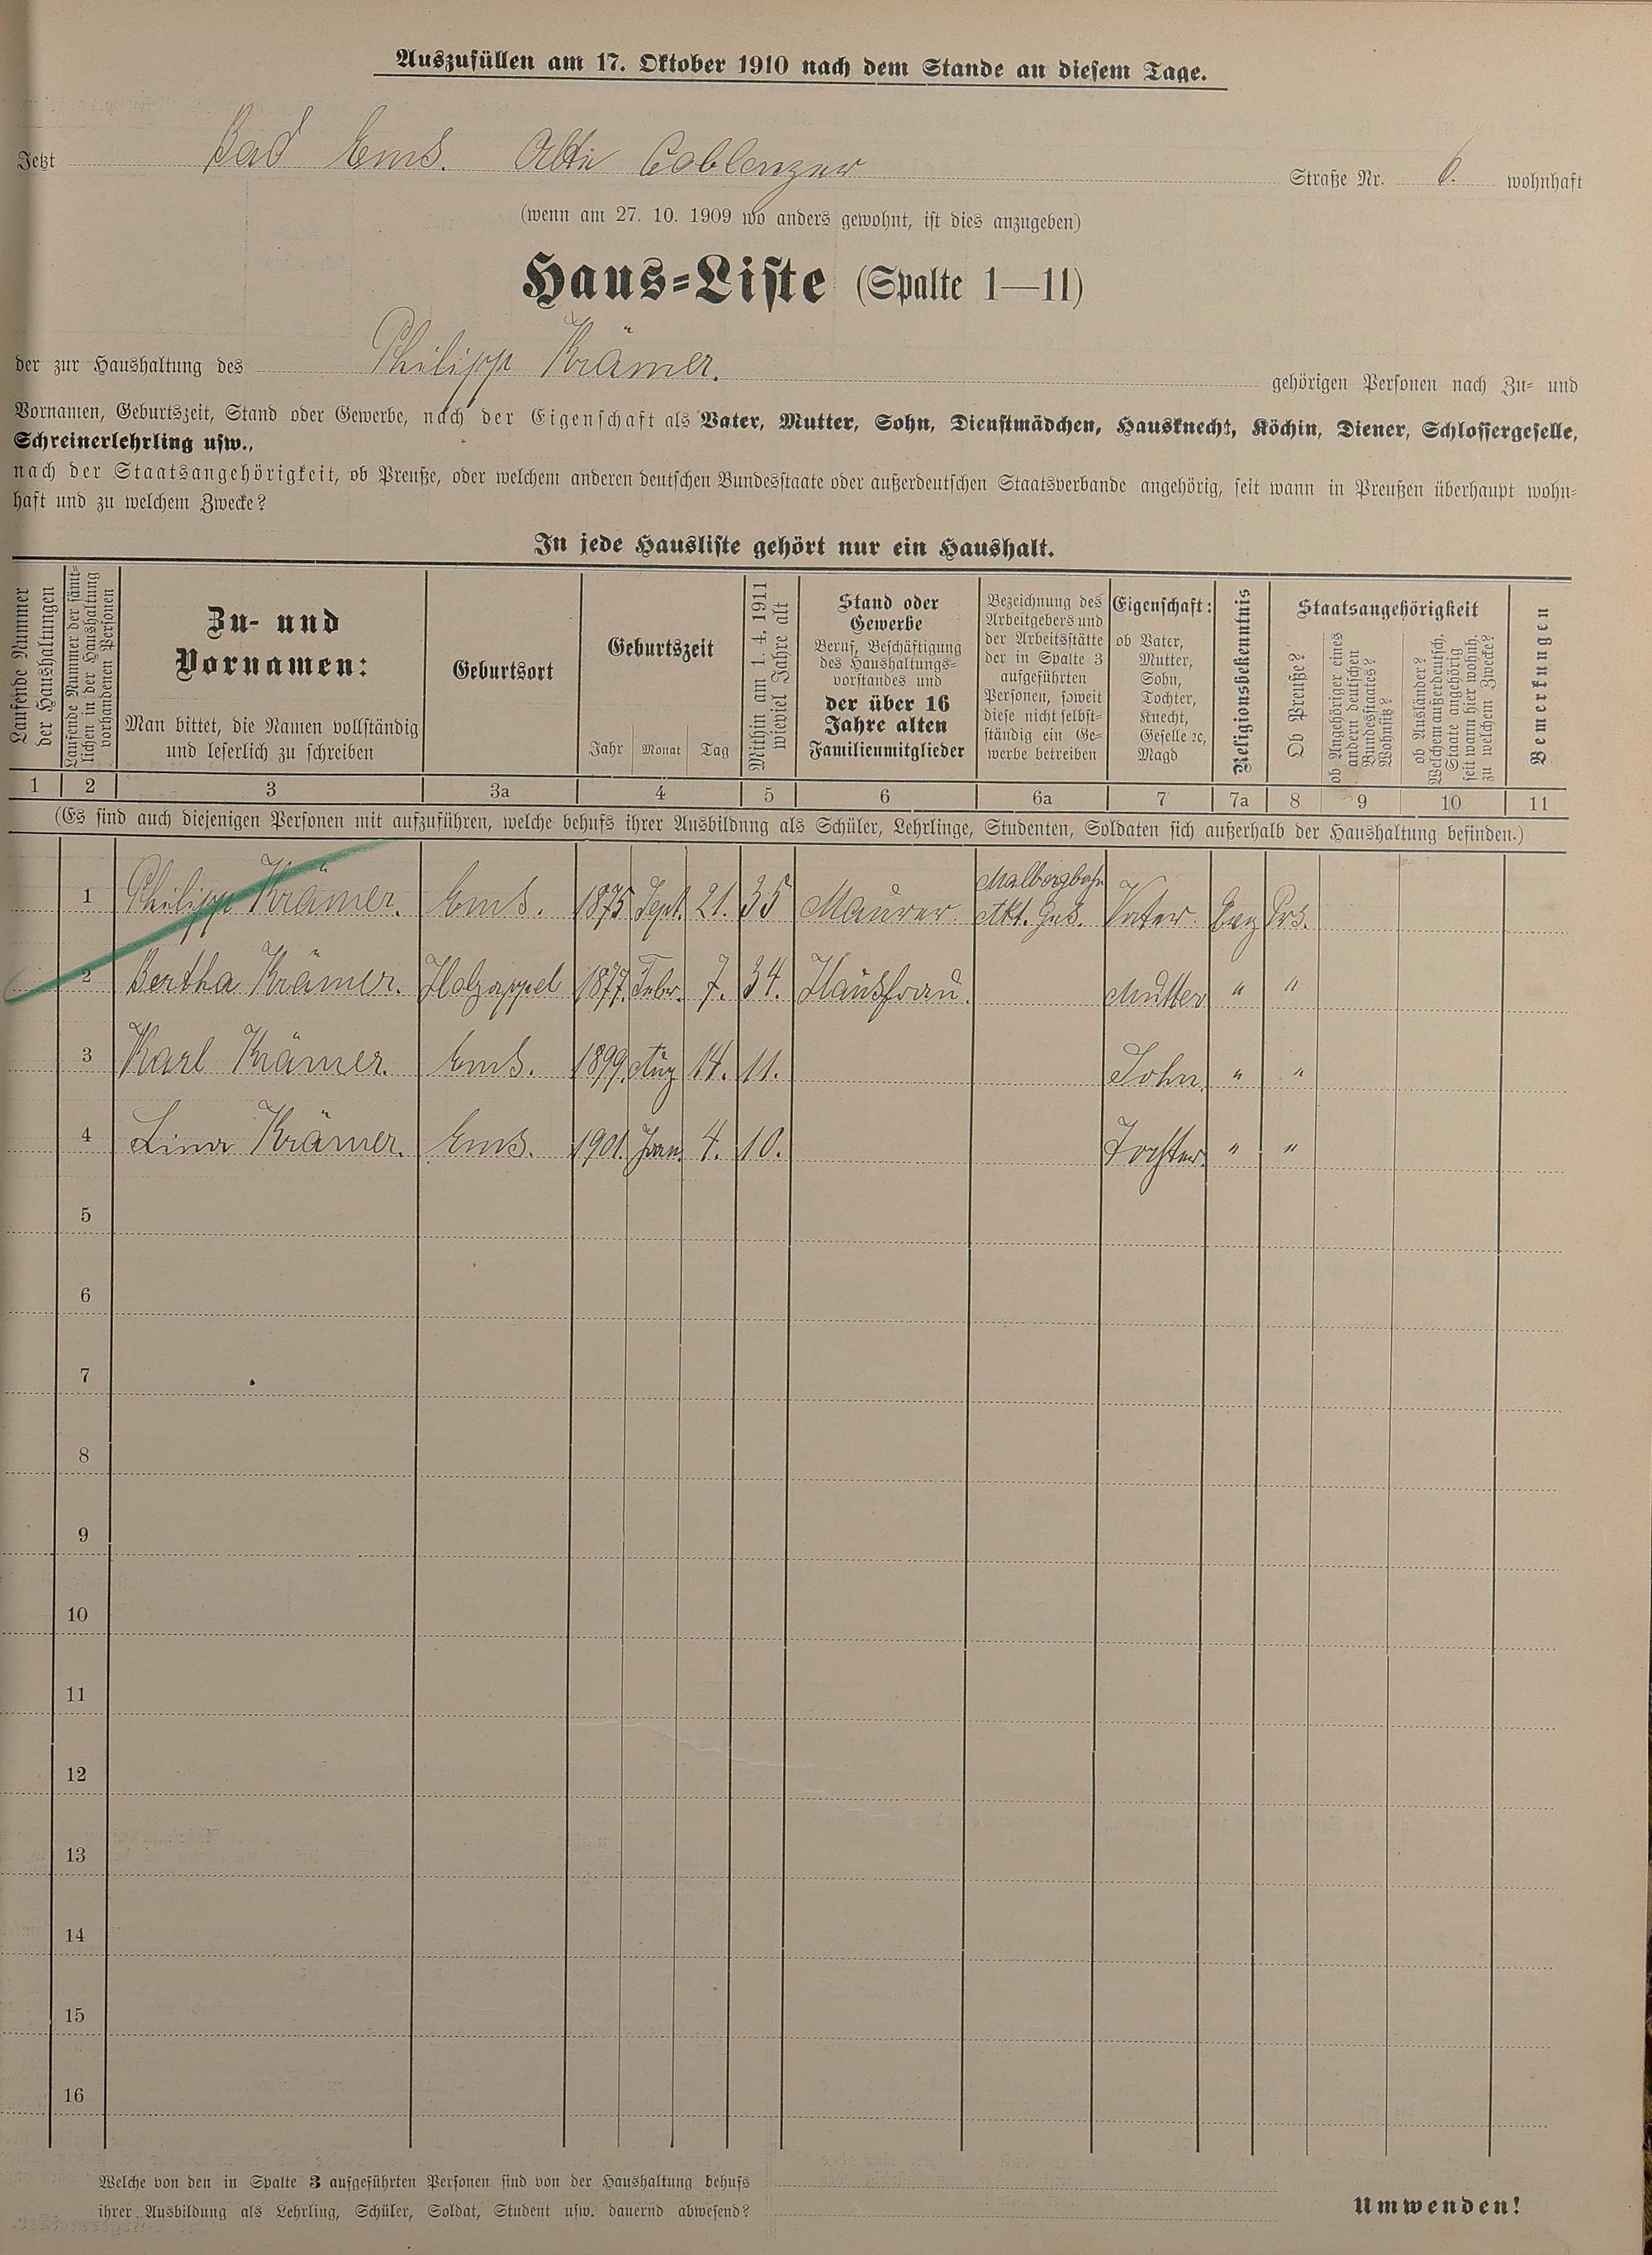 Auszufüllen am 17. Oktober 1910 nach dem Stande an diesem Tage.
Jetzt Bad Ems. Alte Coblenzer Straße Nr. 6. wohnhaft
(wenn am 27. 10. 1909 wo anders gewohnt, ist dies anzugeben)
Haus-Liste (Spalte 1—11)
der zur Haushaltung des Philipp Krämer. gehörigen Personen nach Zu- und
Vornamen, Geburtszeit, Stand oder Gewerbe, nach der Eigenschaft als Vater, Mutter, Sohn, Dienstmädchen, Hausknecht, Köchin, Diener, Schlossergeselle,
Schreinerlehrling usw.,
nach der Staatsangehörigkeit, ob Preuße, oder welchem anderen deutschen Bundesstaate oder außerdeutschen Staatsverbande angehörig, seit wann in Preußen überhaupt wohn-
haft und zu welchem Zwecke?
In jede Hausliste gehört nur ein Haushalt.
Laufende Nummer
der Haushaltungen
Laufende Nummer der sämt-
lichen in der Haushaltung
vorhandenen Personen
Zu- und
Vornamen:
Man bittet, die Namen vollständig
und leserlich zu schreiben
Geburtsort
Geburtszeit
Jahr Monat Tag
Mithin am 1. 4. 1911
wieviel Jahre alt
Stand oder
Gewerbe
Beruf, Beschäftigung
des Haushaltungs-
vorstandes und
der über 16
Jahre alten
Familienmitglieder
Bezeichnung des
Arbeitgebers und
der Arbeitsstätte
der in Spalte 3
aufgeführten
Personen, soweit
diese nicht selbst-
ständig ein Ge-
werbe betreiben
Eigenschaft:
ob Vater,
Mutter,
Sohn,
Tochter,
Knecht,
Geselle ꝛc,
Magd
Religionsbekenntnis
Staatsangehörigkeit
Ob Preuße?
ob Angehöriger eines
andern deutschen
Bundesstaates?
Wohnsitz?
ob Ausländer?
Welchem außerdeutsch.
Staate angehörig
seit wann hier wohnh.
zu welchem Zwecke?
Bemerkungen
1 2 3 3a 4 5 6 6a 7 7a 8 9 10 11
(Es sind auch diejenigen Personen mit aufzuführen, welche behufs ihrer Ausbildung als Schüler, Lehrlinge, Studenten, Soldaten sich außerhalb der Haushaltung befinden.)
1 Philipp Krämer. Ems. 1875 Sept. 21. 35 Maurer. Malbergbahn Akt. Ges. Vater. Evg Prs.
2 Bertha Krämer. Holzappel 1877. Febr. 7. 34. Hausfrau. Mutter " "
3 Karl Krämer. Ems. 1899. Aug 14. 11. Sohn. " "
4 Lina Krämer. Ems. 1901. Jan. 4. 10. Tochter. " "
5
6
7
8
9
10
11
12
13
14
15
16
Welche von den in Spalte 3 aufgeführten Personen sind von der Haushaltung behufs
ihrer Ausbildung als Lehrling, Schüler, Soldat, Student usw. dauernd abwesend?
Umwenden!